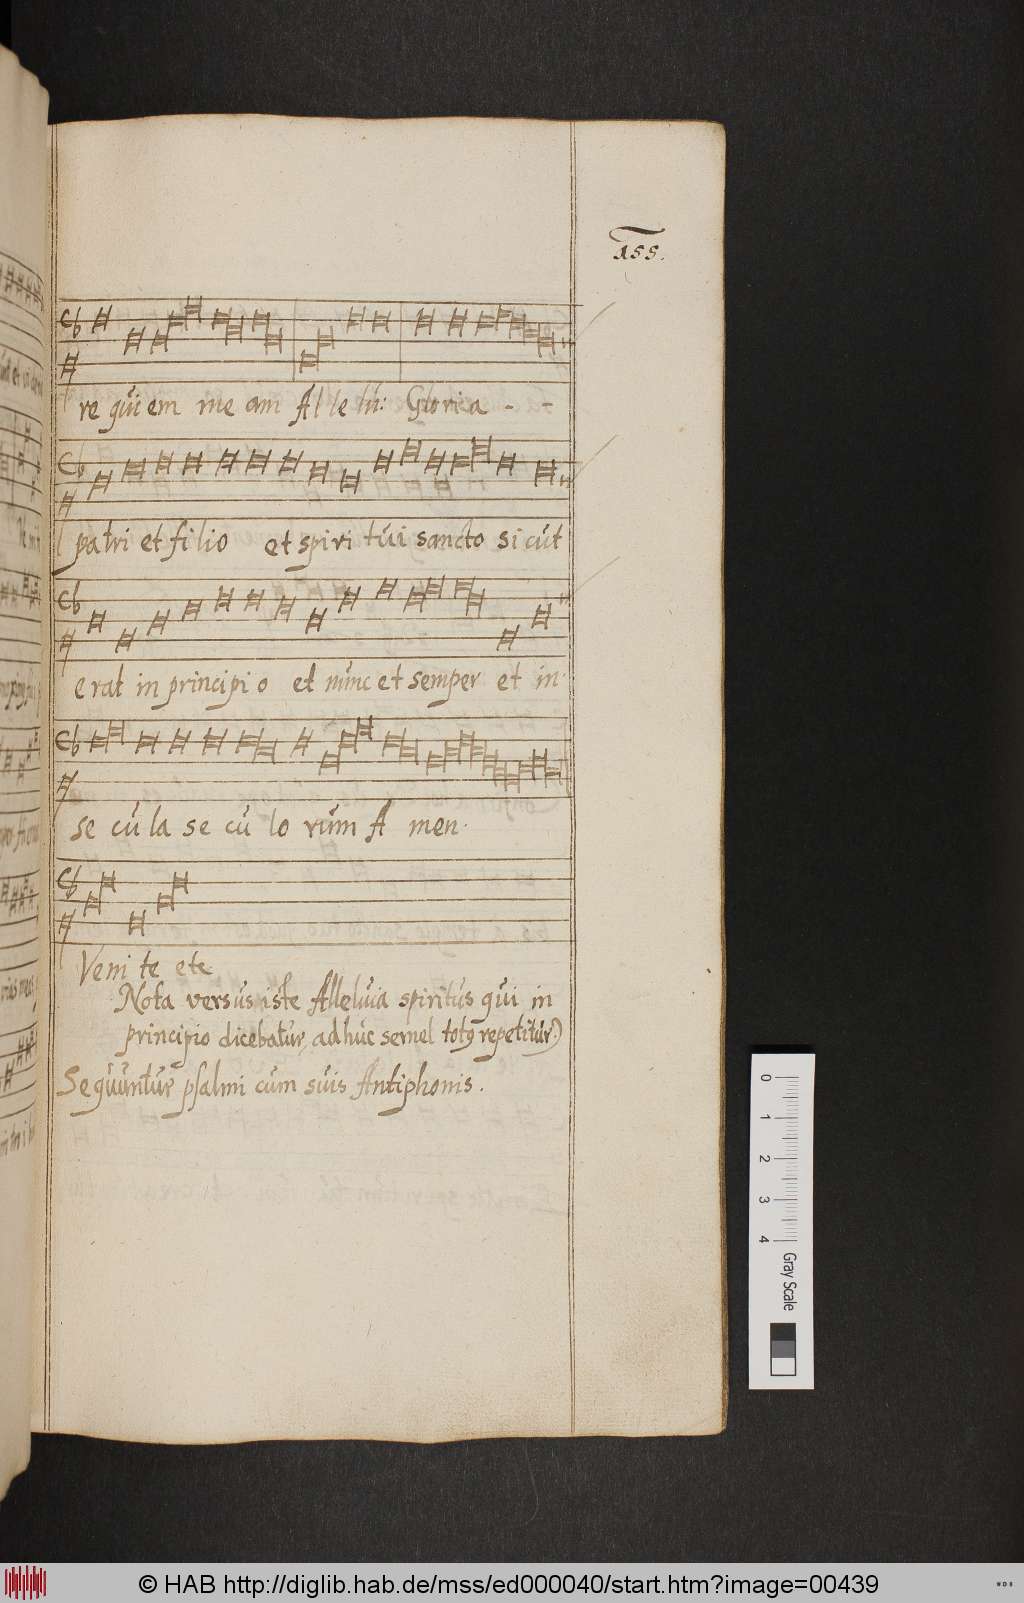 155.
re qui em me am Al le lu: Gloria - -
patri et filio et spiri tui sancto sicut
erat in principio et nunc et semper et in
se cu la se cu lo rum A men.
Veni te etc
Nota versus iste Alleluia spiritus qui in
principio dicebatur, adhuc semel totq repetitur.)
Sequuntur psalmi cum suis Antiphonis.
0 1 2 3 4 Gray Scale
© HAB http://diglib.hab.de/mss/ed000040/start.htm?image=00439